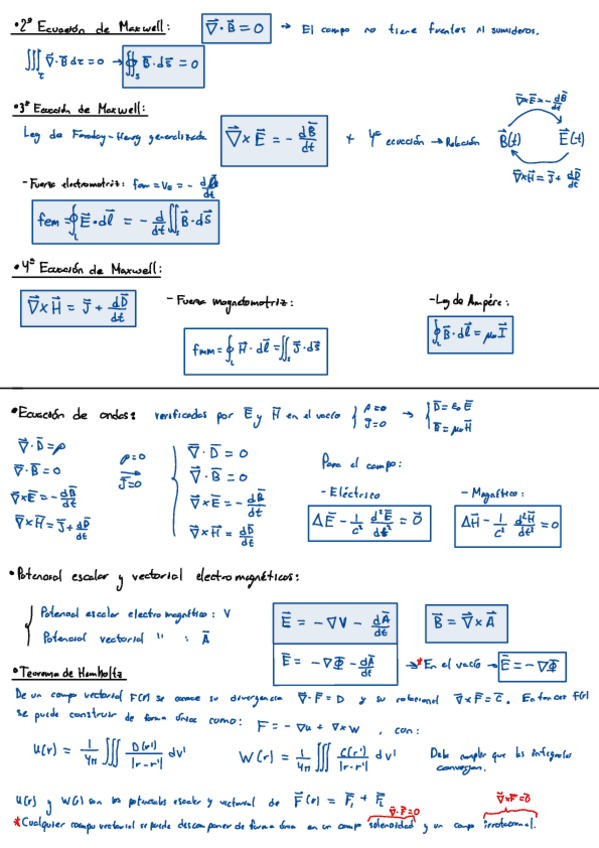 •2ª Ecuación de Maxwell: ∇⃗·B⃗ = 0 → El campo no tiene fuentes ni sumideros.
∭_τ ∇⃗·B⃗ dτ = 0 → ∯_S B⃗·dS⃗ = 0
•3ª Ecuación de Maxwell:
Ley de Faraday-Henry generalizada ∇⃗×E⃗ = - dB⃗/dt + 4ª ecuación → Relación B⃗(t) E⃗(t)
∇×E = - dB⃗/dt
∇⃗×H⃗ = J⃗ + dD⃗/dt
- Fuerza electromotriz: fem = V₀ = -
fem = ∮_L E⃗·dl⃗ = - d/dt ∬_S B⃗·dS⃗
•4ª Ecuación de Maxwell:
∇⃗×H⃗ = J⃗ + dD⃗/dt
- Fuerza magnetomotriz:
fmm = ∮_L H⃗·dl⃗ = ∬_S J⃗·dS⃗
- Ley de Ampére:
∮_L B⃗·dl⃗ = μ₀ I⃗
•Ecuación de ondas: verificadas por E⃗ y H⃗ en el vacío { ρ=0 J⃗=0 → { D⃗ = ε₀ E⃗ B⃗ = μ₀ H⃗
∇⃗·D⃗ = ρ
∇⃗·B⃗ = 0
∇⃗×E⃗ = - dB⃗/dt
∇⃗×H⃗ = J⃗ + dD⃗/dt
ρ=0
J⃗=0
∇⃗·D⃗ = 0
∇⃗·B⃗ = 0
∇⃗×E⃗ = - dB⃗/dt
∇⃗×H⃗ = dD⃗/dt
Para el campo:
- Eléctrico
ΔE⃗ - 1/c² d²E⃗/dt² = 0⃗
- Magnético:
ΔH⃗ - 1/c² d²H⃗/dt² = 0
•Potencial escalar y vectorial electromagnéticos:
Potencial escalar electromagnético: V
Potencial vectorial " : A⃗
E⃗ = - ∇V - dA⃗/dt
B⃗ = ∇⃗×A⃗
E⃗ = - ∇Φ - dA⃗/dt → *En el vacío → E⃗ = - ∇Φ
•Teorema de Hemholtz
De un campo vectorial F(r) se conoce su divergencia ∇⃗·F⃗ = D y su rotacional ∇⃗×F⃗ = C⃗. Entonces F(r)
se puede construir de forma única como: F = - ∇u + ∇×W, con:
U(r) = 1/4π ∭ D(r')/|r-r'| dV'
W(r) = 1/4π ∭ C(r')/|r-r'| dV'
Debe cumplir que las integrales
converjan.
U(r) y W(r) son los potenciales escalar y vectorial de F⃗(r) = F⃗₁ + F⃗₂
∇·F=0
∇×F=0
*Cualquier campo vectorial se puede descomponer de forma única en un campo solenoidal y un campo irrotacional.